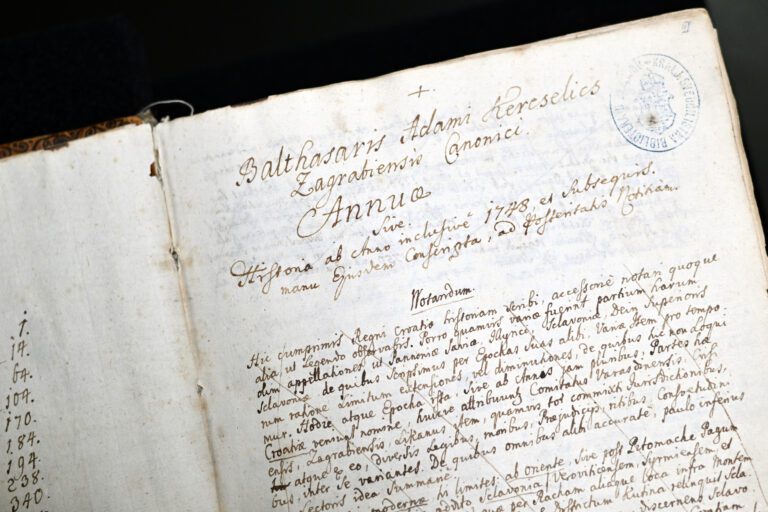 1.
14.
64.
104.
170.
184.
194.
238.
340.
+
Balthasaris Adami Kercselics
Zagrabiensis Canonici.
Annuæ
Sive.
Historia ab Anno inclusivè 1748. et Subsequis.
manu Ejusdem Conscripta, ad Posteritatis Notitiam.
Notandum.
Hic cumprimis Regni Croatiæ historiam scribi, accessoriè notari quoque
alia, ut Legendo observabis. Porro quamvis variæ fuerint partium harum
dum appellationes, ut Pannonia Savia, Illyrici, Sclavonia, Dein Superioris
Sclavoniæ de quibus Scripsimus per Epochas Suas alibi. Varia item pro tempo
rum ratione Limitum extensiones, vel diminutiones, de quibus hic non loqui
mur. Hodie atque Epocha ista, Sive ab Annis jam pluribus: Partes hæ
Croatiæ veniunt nomine, huicve attribuunt Comitatus Varasdinensis, Crisi
ensis, Zagrabiensis, Likanus item, quamvis tot commixti Jurisdictionibus,
atque ex eo, diversis Legibus, moribus, Præjudicijs, ritibus, Consvetudini
bus, inter se variantes. De quibus omnibus alibi accurate, paulo inferius
Lectoris idea Summarie.
modernæ hi limites: ab oriente, Sive post Petomache Pagum
Sclavonia, Veroviticensem, Syrmiensem et
que per Racham aliaque Loca infra Montem
Districtum Kutina relinquit Scla
discernens Sclavo